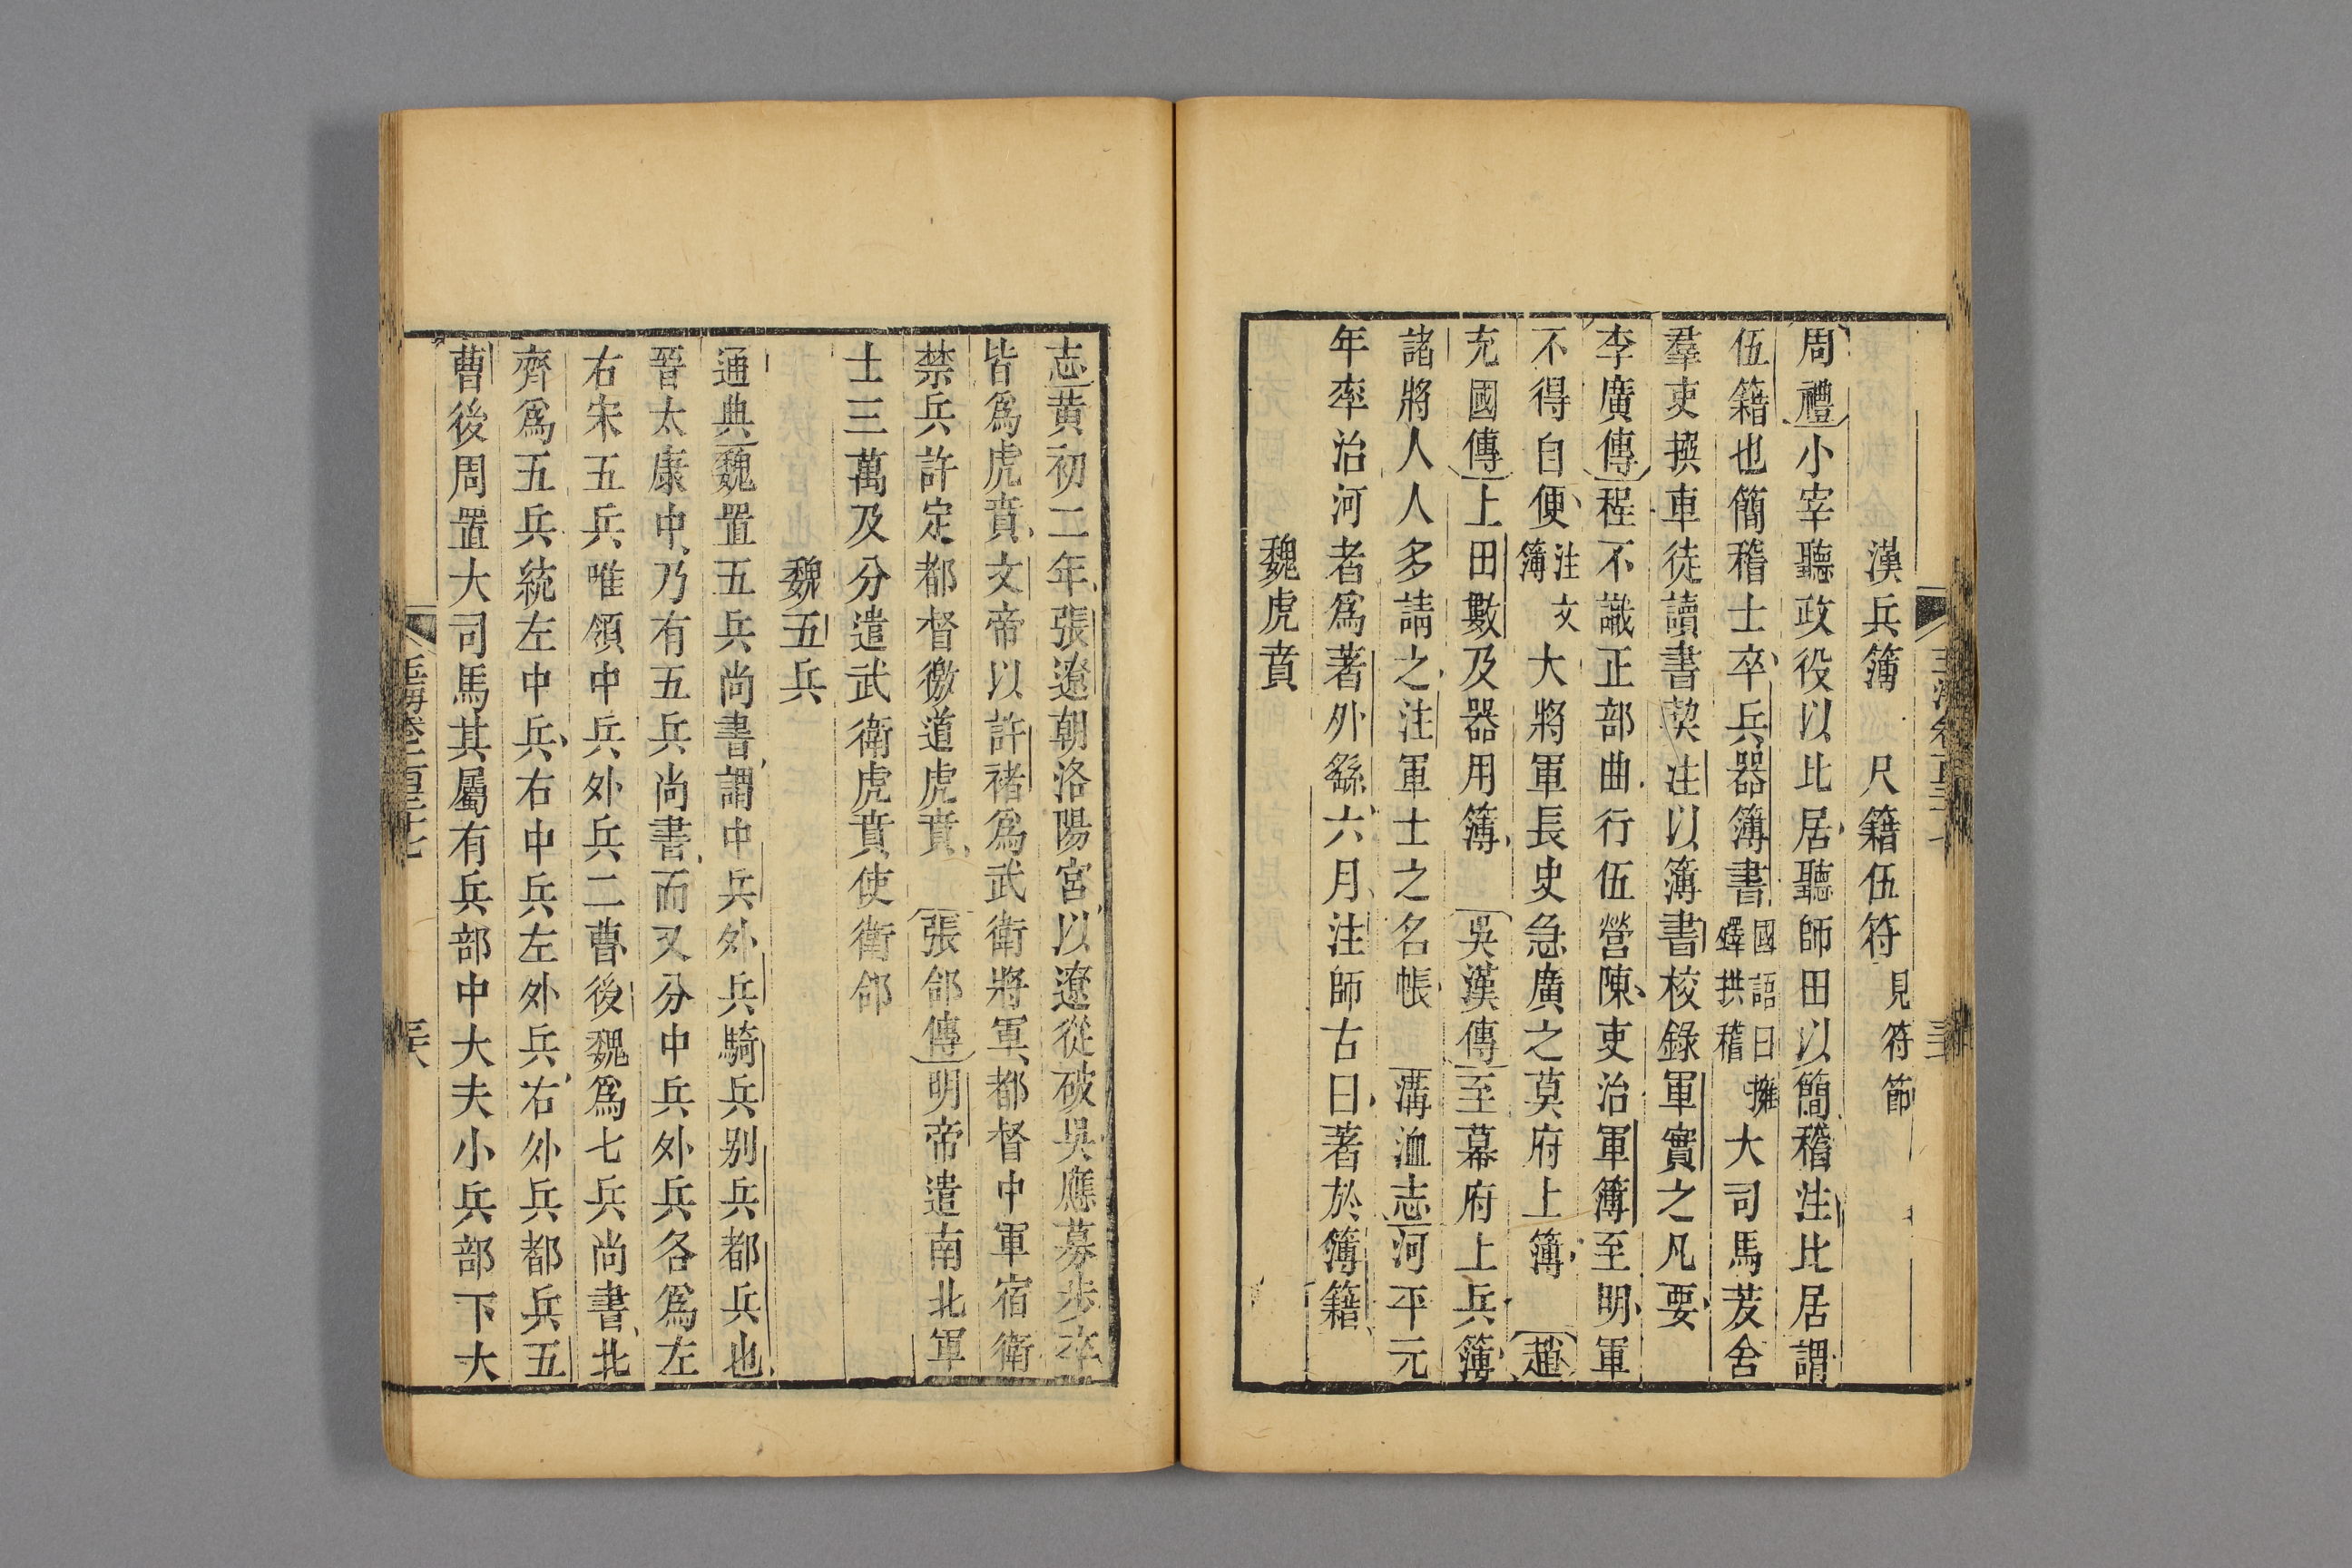 漢兵簿 尺籍伍符 見符節
周禮小宰聽政役以比居聽師田以簡稽注比居謂
伍籍也簡稽士卒兵器簿書國語曰擁鐸拱稽大司馬茇舍
羣吏撰車徒讀書契注以簿書校錄軍實之凡要
李廣傳程不識正部曲行伍營陳吏治軍簿至明軍
不得自便注文簿大將軍長史急廣之莫府上簿 趙
充國傳上田數及器用簿 吳漢傳至幕府上兵簿
諸將人人多請之注軍士之名帳 溝洫志河平元
年率治河者爲著外繇六月注師古曰著於簿籍
魏虎賁
志黃初二年張遼朝洛陽宮以遼從破吳應募步卒
皆爲虎賁文帝以許褚爲武衛將軍都督中軍宿衛
禁兵許定都督徼道虎賁 張郃傳明帝遣南北軍
士三萬及分遣武衛虎賁使衛郃
魏五兵
通典魏置五兵尚書謂中兵外兵騎兵别兵都兵也
晉太康中乃有五兵尚書而又分中兵外兵各爲左
右宋五兵唯領中兵外兵二曹後魏爲七兵尚書北
齊爲五兵統左中兵右中兵左外兵右外兵都兵五
曹後周置大司馬其屬有兵部中大夫小兵部下大